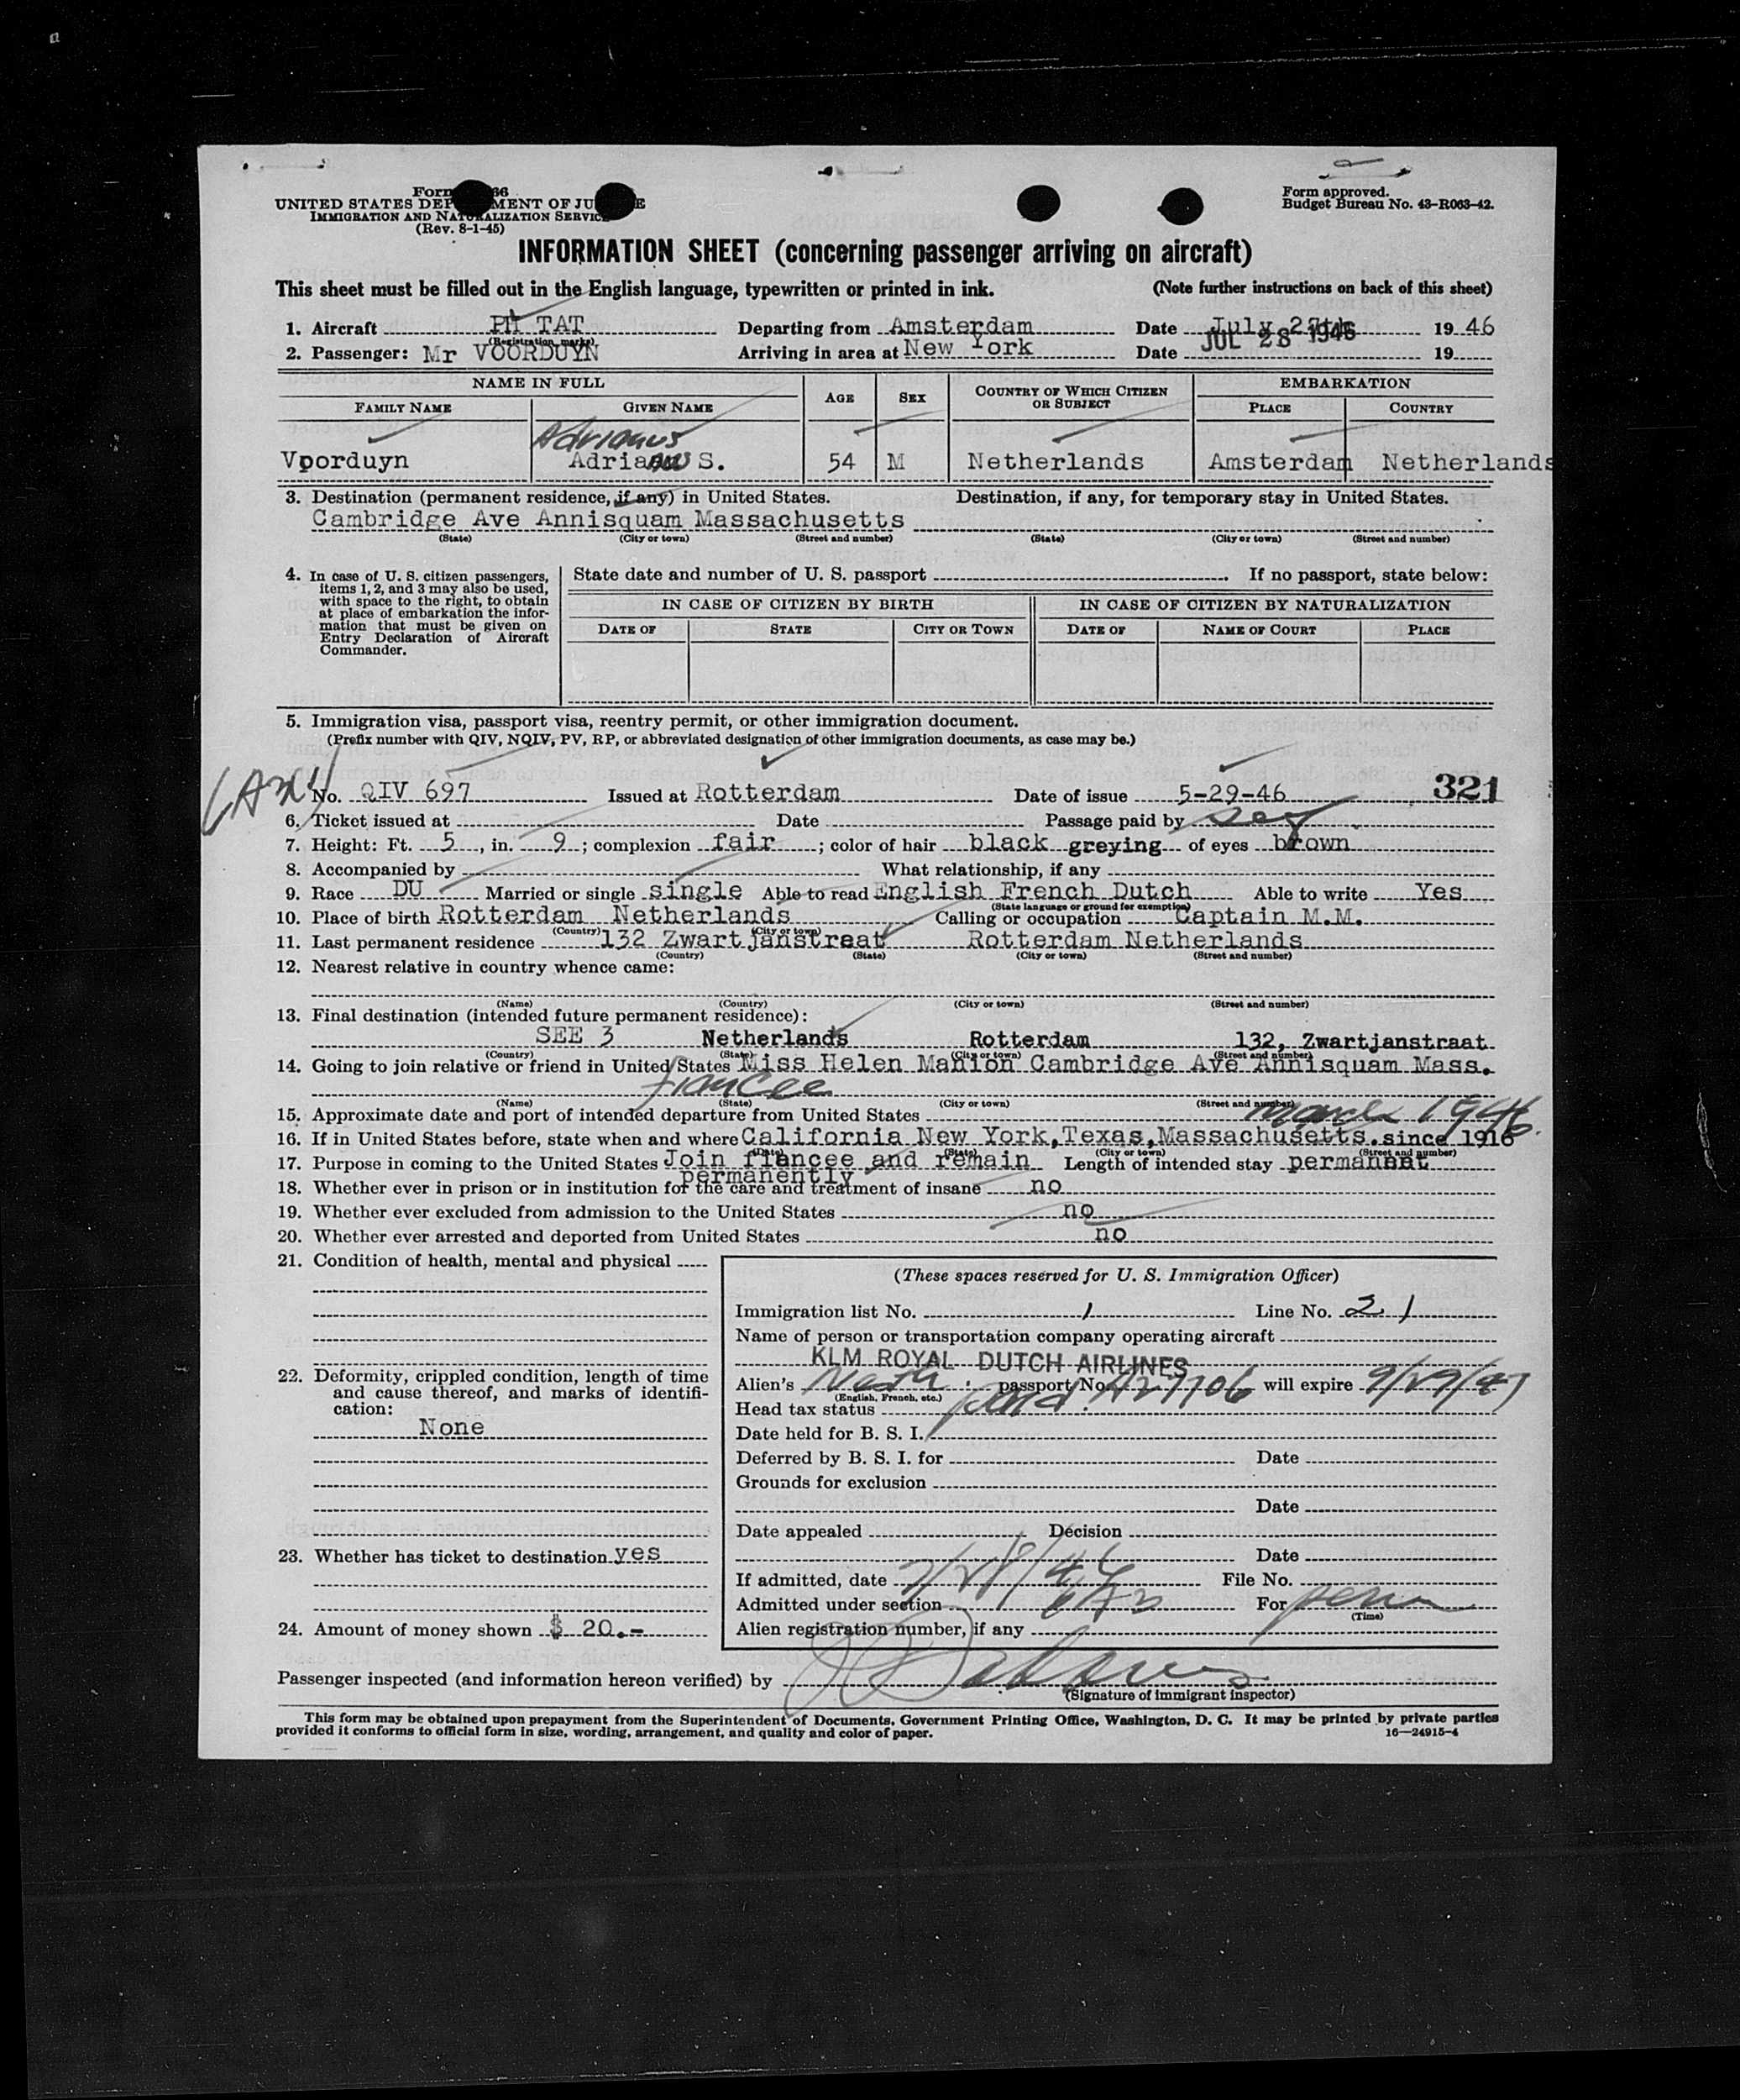 Form 66
UNITED STATES DEP MENT OF JU E
IMMIGRATION AND NATURALIZATION SERVICE
(Rev. 8-1-45)
Form approved.
Budget Bureau No. 43-R063-42.
INFORMATION SHEET (concerning passenger arriving on aircraft)
This sheet must be filled out in the English language, typewritten or printed in ink. (Note further instructions on back of this sheet)
1. Aircraft PH TAT Departing from Amsterdam Date July 27th 19 46
(Registration marks)
2. Passenger: Mr VOORDUYN Arriving in area at New York Date JUL 28 1946 19
NAME IN FULL AGE SEX COUNTRY OF WHICH CITIZEN OR SUBJECT EMBARKATION
FAMILY NAME GIVEN NAME PLACE COUNTRY
Adrianus
Voorduyn Adrianus S. 54 M Netherlands Amsterdam Netherlands
3. Destination (permanent residence, if any) in United States. Destination, if any, for temporary stay in United States.
Cambridge Ave Annisquam Massachusetts
(State) (City or town) (Street and number) (State) (City or town) (Street and number)
4. In case of U. S. citizen passengers, items 1, 2, and 3 may also be used, with space to the right, to obtain at place of embarkation the information that must be given on Entry Declaration of Aircraft Commander.
State date and number of U. S. passport If no passport, state below:
IN CASE OF CITIZEN BY BIRTH IN CASE OF CITIZEN BY NATURALIZATION
DATE OF STATE CITY OR TOWN DATE OF NAME OF COURT PLACE
5. Immigration visa, passport visa, reentry permit, or other immigration document.
(Prefix number with QIV, NQIV, PV, RP, or abbreviated designation of other immigration documents, as case may be.)
No. QIV 697 Issued at Rotterdam Date of issue 5-29-46 321
6. Ticket issued at Date Passage paid by
7. Height: Ft. 5, in. 9; complexion fair; color of hair black greying of eyes brown
8. Accompanied by What relationship, if any
9. Race DU Married or single single Able to read English French Dutch Able to write Yes
(State language or ground for exemption)
10. Place of birth Rotterdam Netherlands Calling or occupation Captain M.M.
(Country) (City or town)
11. Last permanent residence 132 Zwart janstraat Rotterdam Netherlands
(Country) (State) (City or town) (Street and number)
12. Nearest relative in country whence came:
(Name) (Country) (City or town) (Street and number)
13. Final destination (intended future permanent residence):
SEE 3 Netherlands Rotterdam 132, Zwartjanstraat
(Country) (State) (City or town) (Street and number)
14. Going to join relative or friend in United States Miss Helen Manion Cambridge Ave Annisquam Mass.
fiancee
(Name) (State) (City or town) (Street and number)
15. Approximate date and port of intended departure from United States
March 1946.
16. If in United States before, state when and where California New York, Texas, Massachusetts. since 1916
(Date) (State) (City or town) (Street and number)
17. Purpose in coming to the United States Join fiancee and remain Length of intended stay permanent
permanently
18. Whether ever in prison or in institution for the care and treatment of insane no
19. Whether ever excluded from admission to the United States no
20. Whether ever arrested and deported from United States no
21. Condition of health, mental and physical
22. Deformity, crippled condition, length of time and cause thereof, and marks of identification:
None
23. Whether has ticket to destination yes
24. Amount of money shown $ 20.-
(These spaces reserved for U. S. Immigration Officer)
Immigration list No. 1 Line No. 21
Name of person or transportation company operating aircraft
KLM ROYAL DUTCH AIRLINES
Alien's Neth. passport No. A27706 will expire 9/29/47
(English, French, etc.)
Head tax status paid.
Date held for B. S. I.
Deferred by B. S. I. for Date
Grounds for exclusion
Date
Date appealed Decision
Date
If admitted, date 7/28/46 File No.
Admitted under section 6A3 For perm
(Time)
Alien registration number, if any
Passenger inspected (and information hereon verified) by
(Signature of immigrant inspector)
This form may be obtained upon prepayment from the Superintendent of Documents, Government Printing Office, Washington, D. C. It may be printed by private parties
provided it conforms to official form in size, wording, arrangement, and quality and color of paper. 16—24915-4